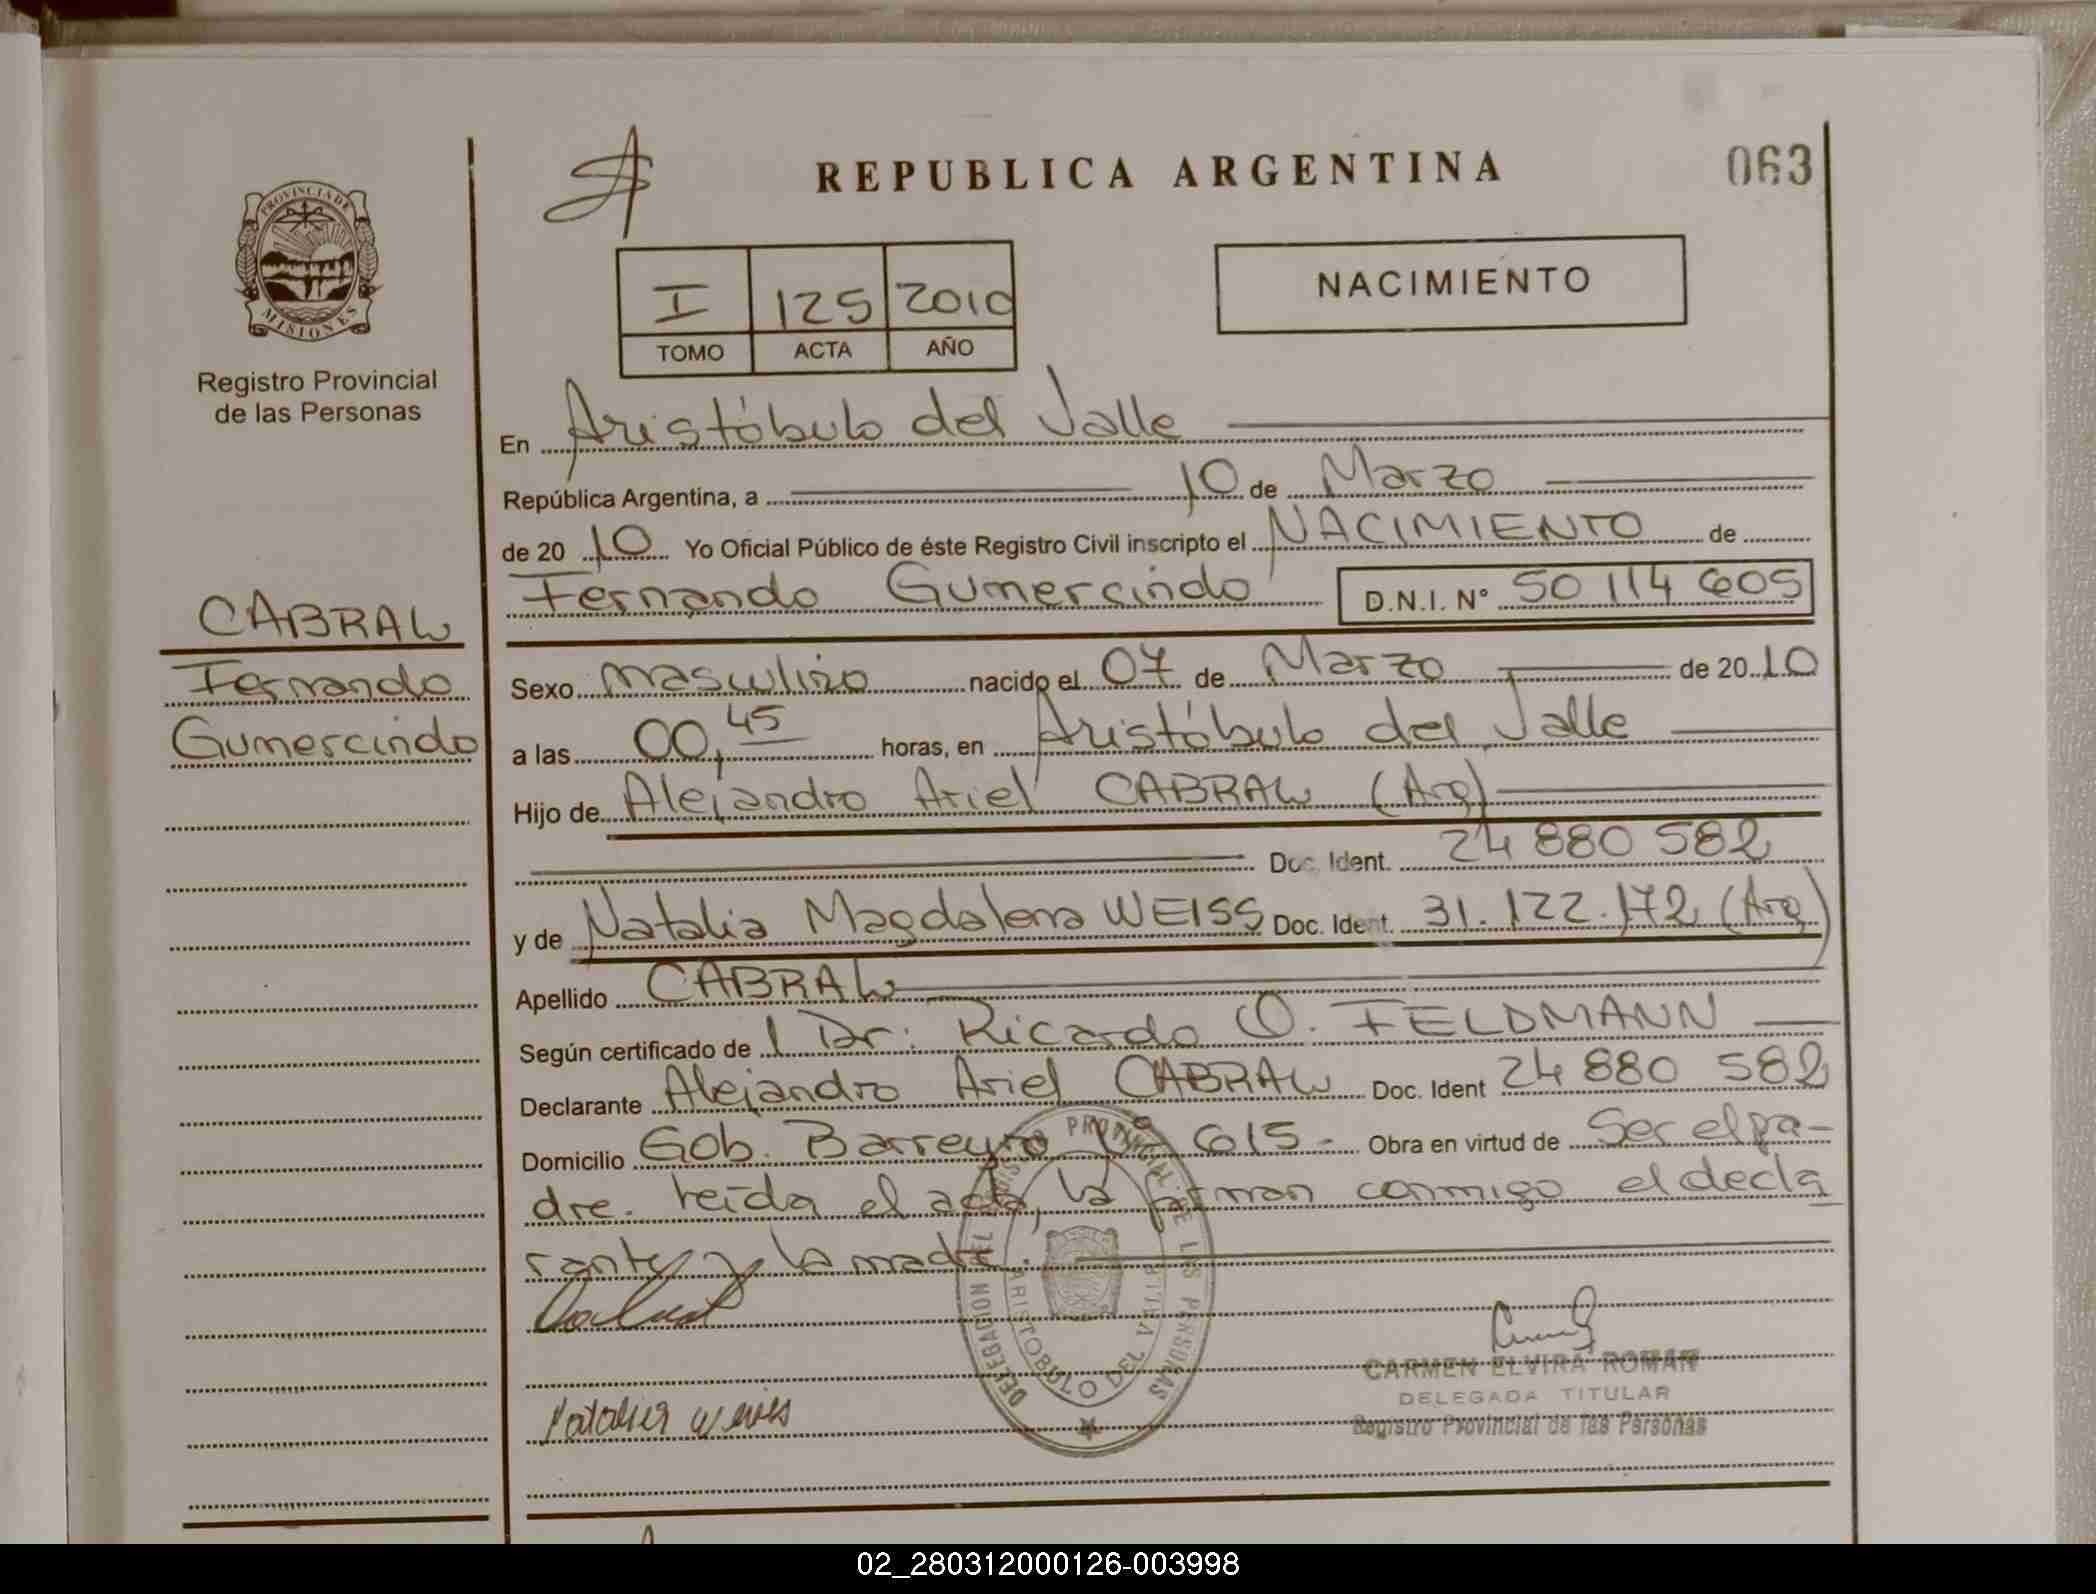 REPUBLICA ARGENTINA
063
PROVINCIA DE
MISIONES
Registro Provincial
de las Personas
I 125 2010
TOMO ACTA AÑO
NACIMIENTO
En Aristóbulo del Valle
República Argentina, a 10 de Marzo
de 2010 Yo Oficial Público de éste Registro Civil inscripto el NACIMIENTO de
Fernando Gumercindo D.N.I. N° 50 114 605
CABRAL
Fernando
Gumercindo
Sexo masculino nacido el 07 de Marzo de 2010
a las 00,45 horas, en Aristóbulo del Valle
Hijo de Alejandro Ariel CABRAL (Arg)
Doc. Ident. 24 880 582
y de Natalia Magdalena WEISS Doc. Ident. 31.122.172 (Arg)
Apellido CABRAL
Según certificado de l Dr. Ricardo O. FELDMANN
Declarante Alejandro Ariel CABRAL Doc. Ident 24 880 582
Domicilio Gob. Barreyro N° 615- Obra en virtud de Ser el pa-
dre. Leída el acta, la firman conmigo el decla
rante y la madre.
Natalia Weiss
DELEGACION DEL REGISTRO PROVINCIAL DE LAS PERSONAS
ARISTOBULO DEL VALLE
CARMEN ELVIRA ROMAN
DELEGADA TITULAR
Registro Provincial de las Personas
02_280312000126-003998